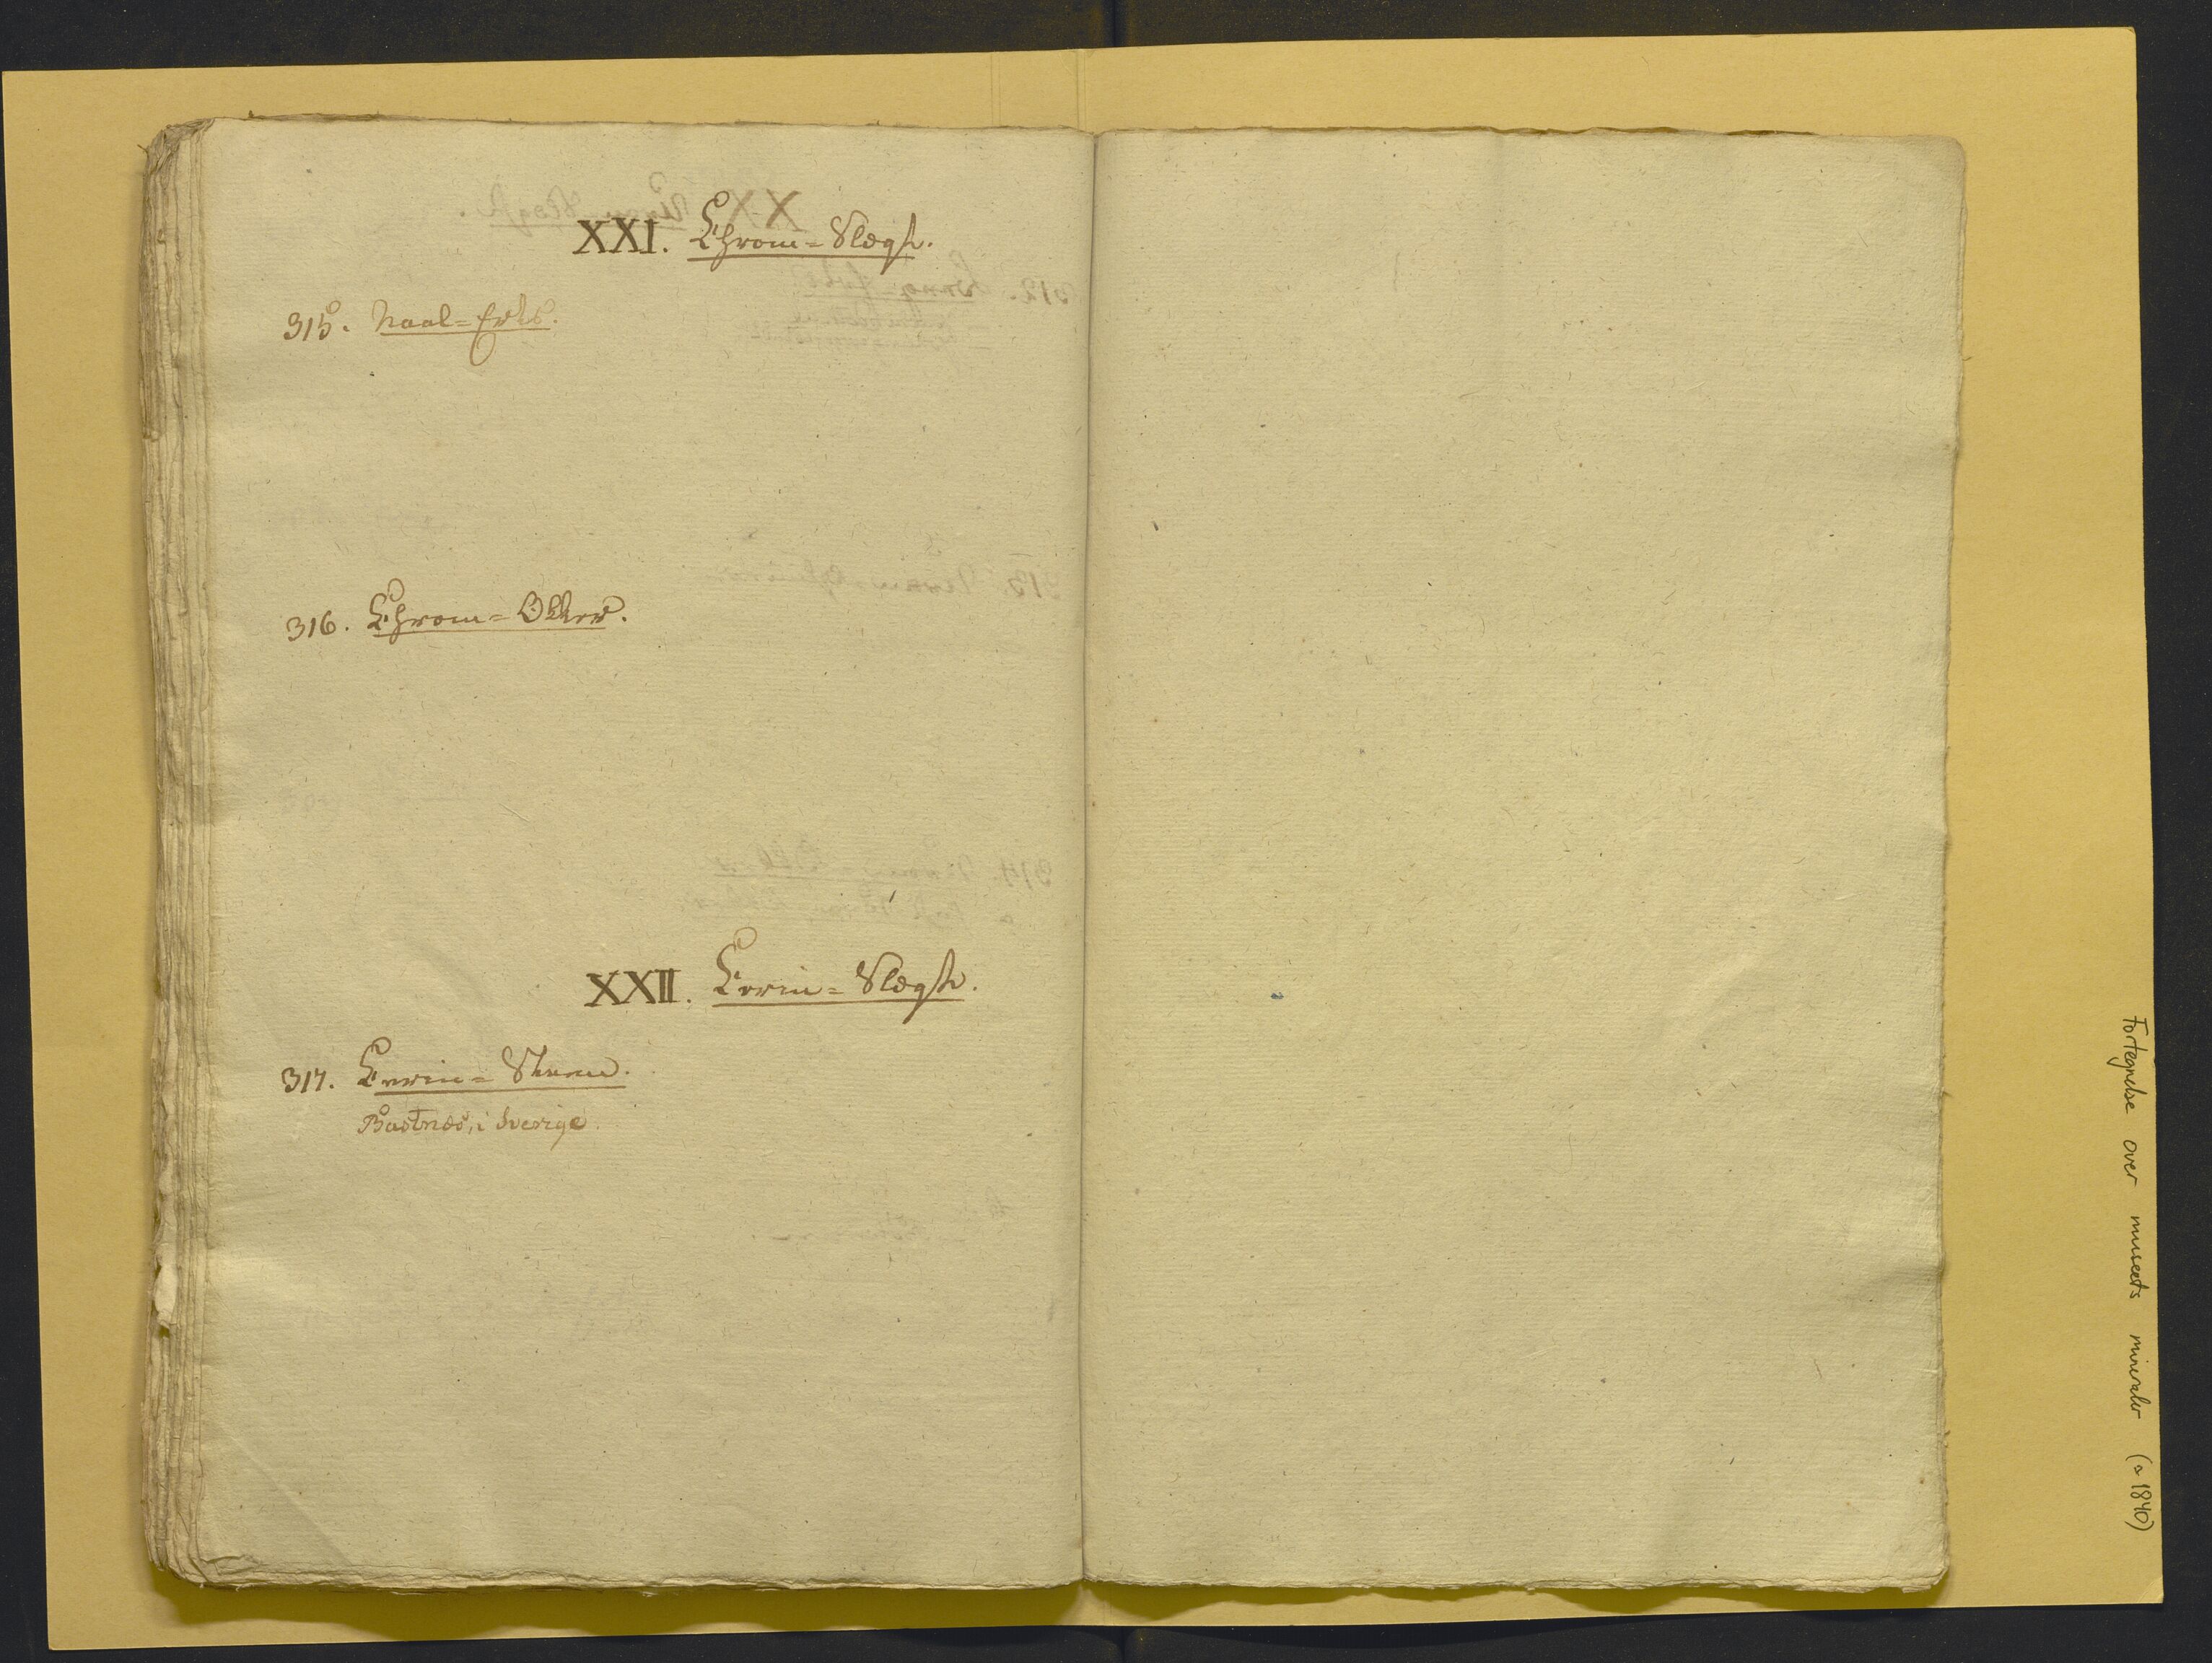 XXI. Chrom=Slægt.
315. Naal=Erts.
316. Chrom=Okker.
XXII. Cerin=Slægt.
317. Cerin=Steen.
Bastnæs, i Sverige.
Fortegnelse over museets mineraler (ca 1840)